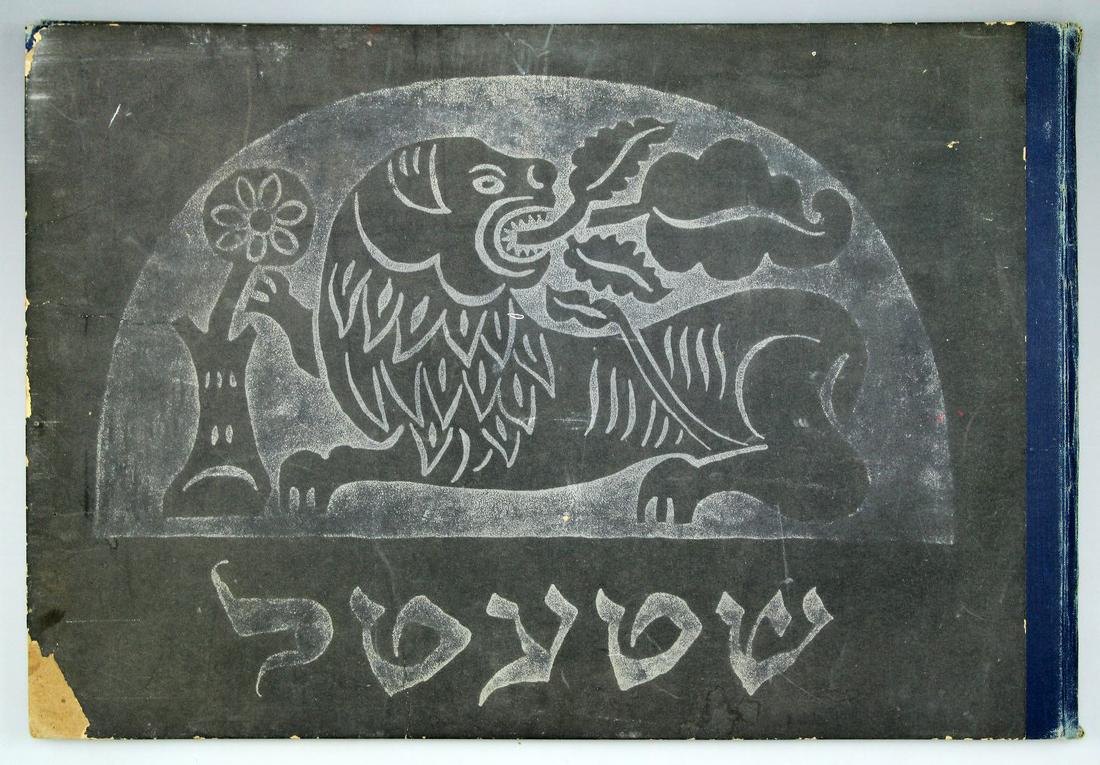 שטעטל